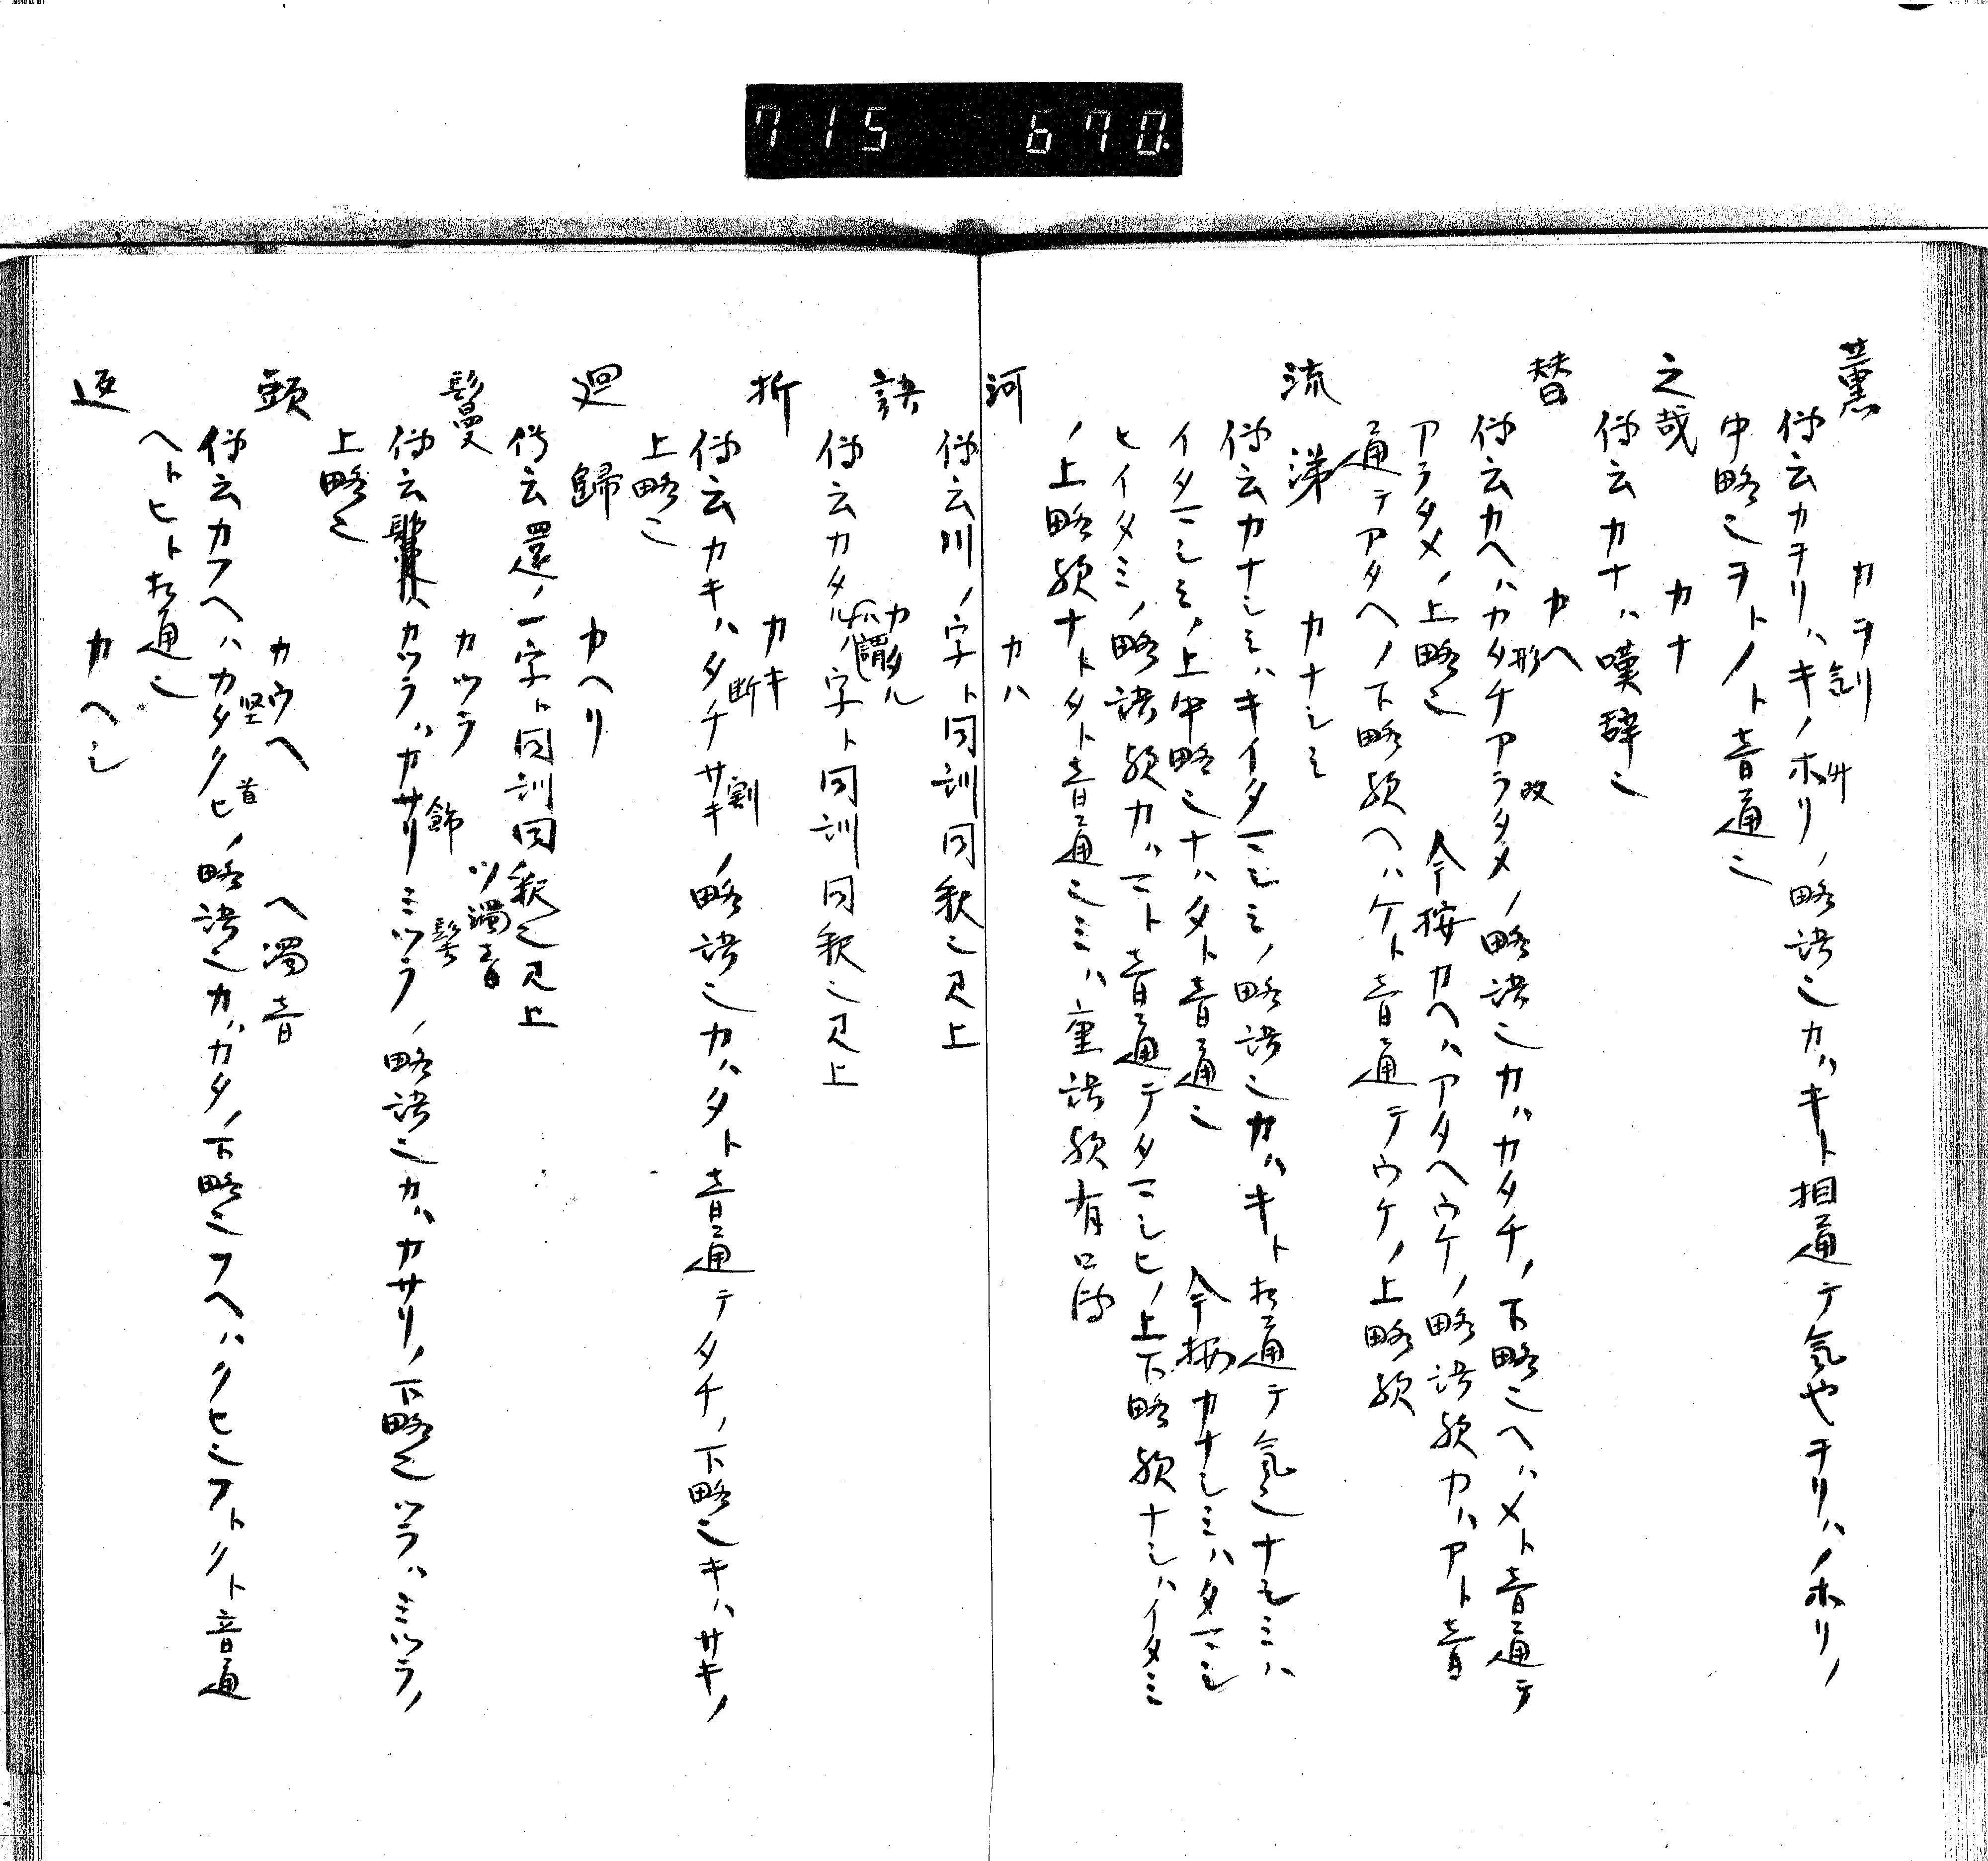 715 670
薫 カヲリ
傳云カヲリハキノホリノ略語ミカハキト相通テ気やヲリハノホリノ
中略ミヲトノト音通ミ
之哉 カナ
傳云カナハ嘆辞ミ
替 カヘ
傳云カヘハカタチアラタメノ略語ミカハカタチノ下略ミヘハメト音通テ
形 改
アラタメノ上略ミ 今按カヘハアタヘウケノ略語欤カハアト音
通テアタヘノ下略欤ヘハケト音通テウケノ上略欤
流涕 カナシミ
傳云カナシミハキイタマシミノ略語ミカハキト相通テ気ミナシミハ
イタマシミノ上中略ミナハタト音通ミ 今按カナシミハタマシ
ヒイタミノ略語欤カハマト音通テタマシヒノ上下略欤ナシハイタミ
ノ上略欤ナトタト音通ミミハ重語欤有口傳
河 カハ
傳云川ノ字ト同訓同釈ミ見上
語 カタル
傳云カタルハ謂ノ字ト同訓同釈ミ見上
折 カキ
傳云カキハタチサキノ略語ミカハタト音通テタチノ下略ミキハサキノ
断 割
上略ミ
廻歸 カヘリ
傳云還ノ一字ト同訓同釈ミ見上
鬘 カツラ ツ濁音
傳云カツラハカサリミツラノ略語ミカハカサリノ下略ミツラハミツラノ
飾 髻
上略ミ
頭 カウヘ ヘ濁音
傳云カフヘハカタクヒノ略語ミカハカタノ下略ミフヘハクヒミフトクト音通
堅 首
ヘトヒト相通ミ
返 カヘシ